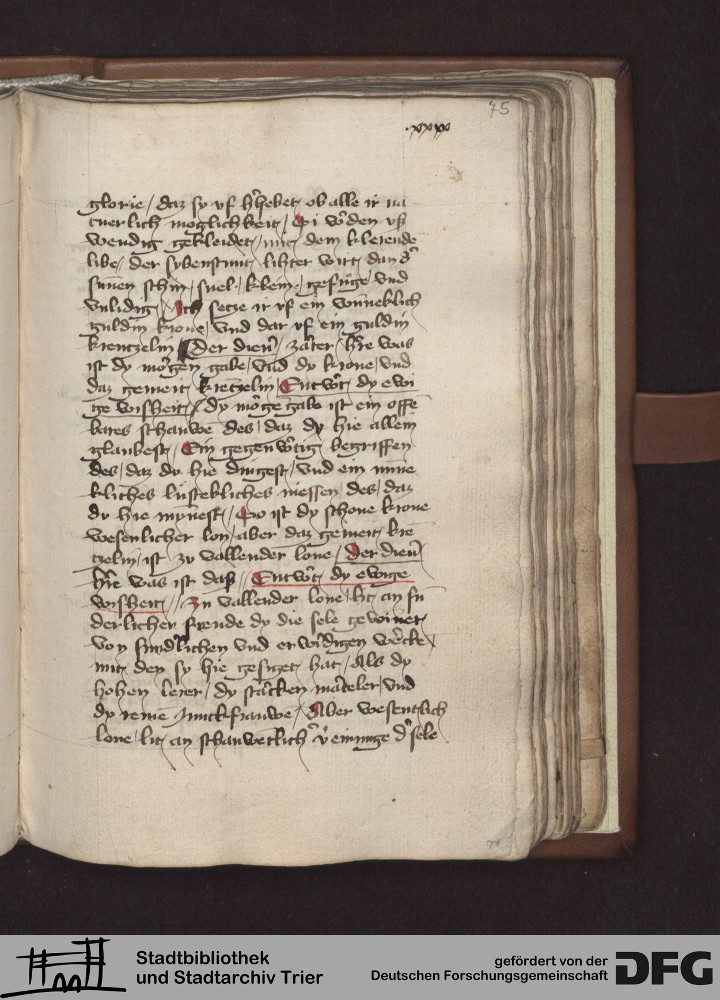 75
·xxxv
glorie / daz sy vf h̕hebet ob alle ir na
tuerlich moglichkeit / Si vv̕den vß
wendig gekleidet / mit dem kleiende
libe / der sybenstunt lihter wirt dan d̕
sunen schin / snel / klein / gefuge vnd
vnlidig / Ich setze ir vf ein wnneklich
guldin krone / vnd dar vf ein guldin
krentzelin / Der dien̕ / zarter h̕re was
ist dy morgen gabe / vnd dy krone / vnd
daz gemeit kretzelin / Entw̕t dy ewi
ge wisheit / dy morge gabe ist ein offē
bares schauwe des / daz dv hie allein
glaubest / Ein gegenw̕tig begriffen
des / daz dv hie dingest / vnd ein mine
kliches lustekliches niessen des / daz
dv hie mynest / So ist dy schone krone
wesenlicher lon / aber daz gemeit krē
tzelin ist zv vallender lone / Der dien̕
h̕re was ist daß / Entw̕t dy ewige
wisheit / Zu vallender lone lit an sū
derlicher freude dy die sele gewinet
von sundlichen vnd erwirdigen wercke
mit den sy hie gesiget hat / Als dy
hohen lerer / dy starcken marteler / vnd
dy reine Junckfrauwe / Aber wesentlich
lone / lit an schauwetlich̕ v̕einunge d̕ sele
Stadtbibliothek
und Stadtarchiv Trier
gefördert von der
Deutschen Forschungsgemeinschaft
DFG